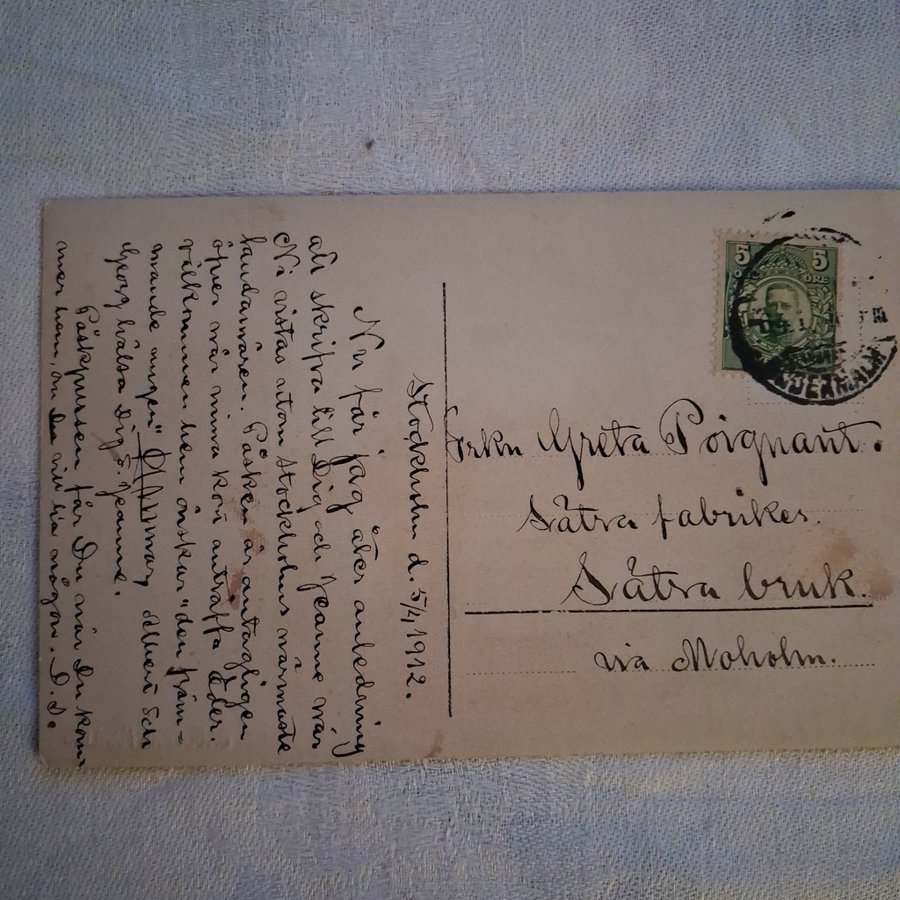 Stockholm d. 5/4 1912.
Nu får jag åter anledning
att skrifva till Dig och Jeanne när
Ni vistas utom Stockholms närmaste
landamären. Påsken är antagligen
öfver när mina kort anträffa Eder.
välkommen hem önskar "den främ-
mande ungen" Albert och
Georg hälsa Dig o. Jeanne.
Påskpussen får Du när Du kom-
mer hem, om Du vill ha någon. D. D.
5 5
ÖRE
Frkn Greta Poignant.
Sätra fabriker.
Sätra bruk.
via Moholm.